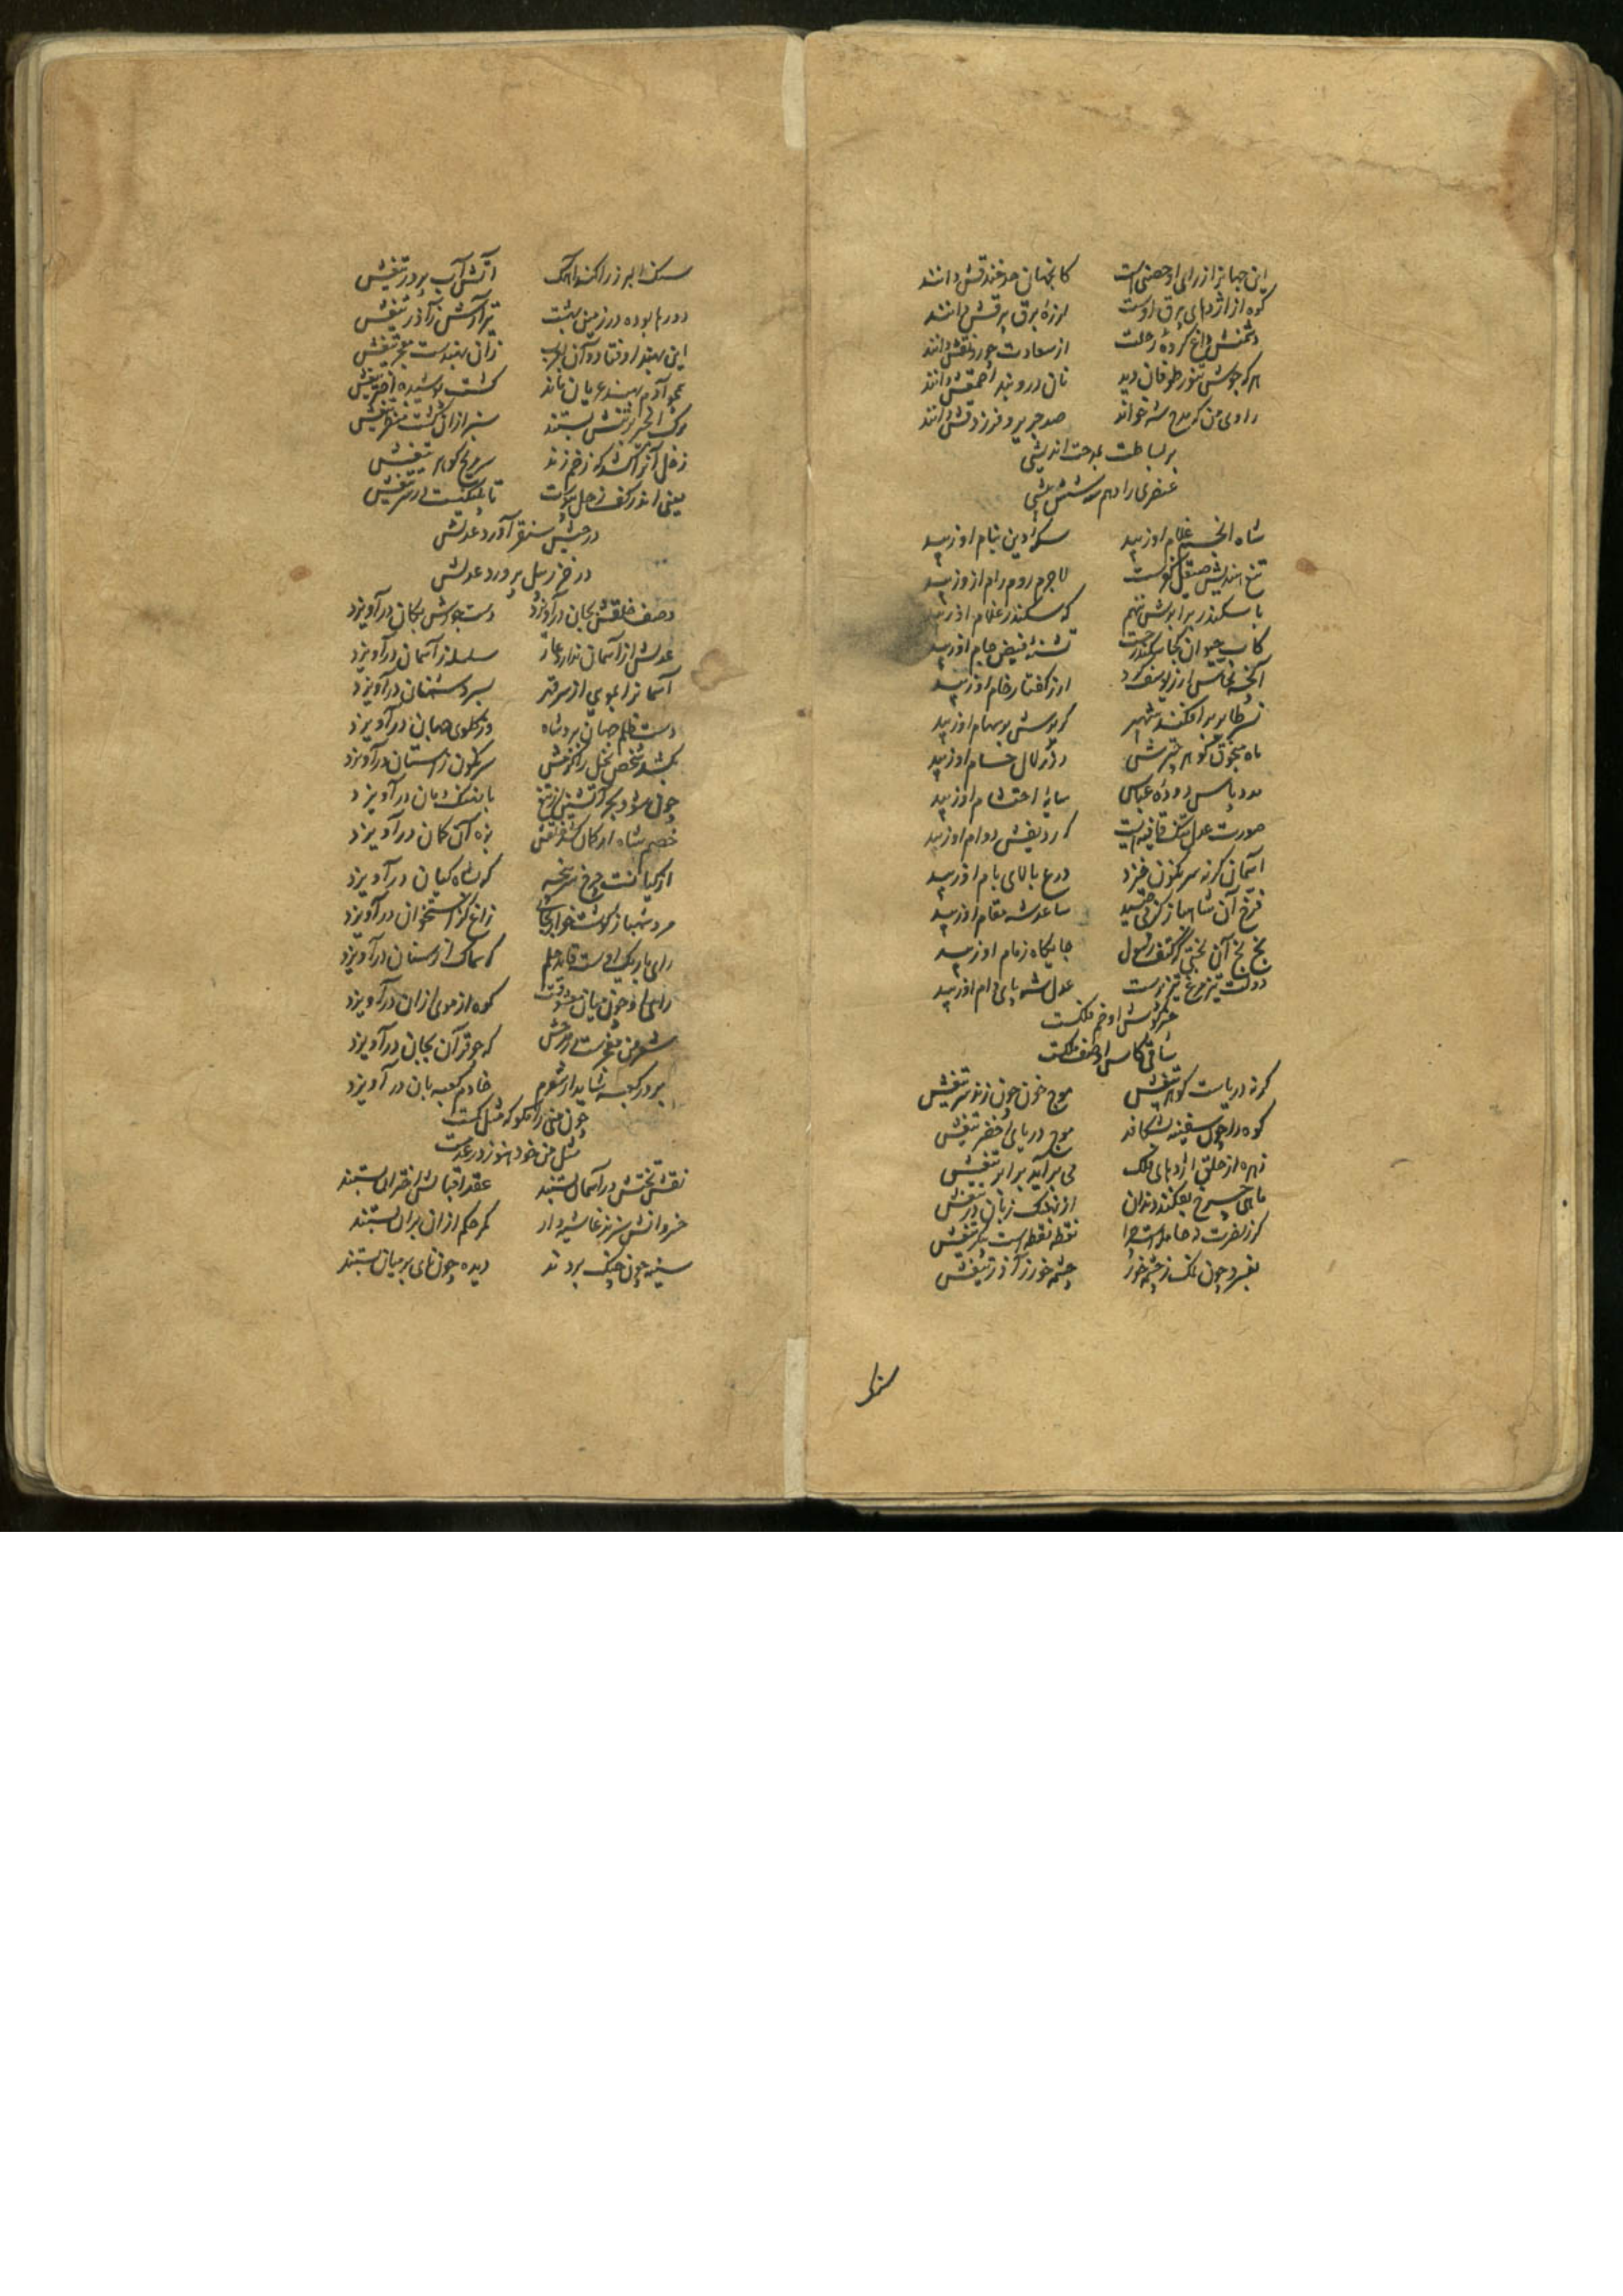 این جهانرا از رای او حصنی است کانجهان حد خندقش دانند
کوه از اژدهای برق اوست لرزهٔ برق برقش دانند
دشمنش داغ کردهٔ زحلست از سعادت چه رونقش دانند
هر که جوشش تنور طوفان دید نان درو بندد احمقش دانند
راوی من که مدح شه خواند صد جریر و فرزدقش دانند
بر بساطت بمدحت اندیشی
عنصری را دهم سه شش پیشی
شاه انجم غلام او زیبد سکهٔ دین بنام او زیبد
تیغ هندیش صیقل کفرست لاجرم روم رام او زیبد
با سکندر برابرش ننهم که سکندر غلام او زیبد
کاب حیوان کجا سکندر جست تشنهٔ فیض جام او زیبد
آنچه نحاس ارز یوسف کرد ارز گفتار خام او زیبد
نسر طایر بیفکند شهپر کر پرش بر سهام او زیبد
ماه منجوق گوهر چترش در لآل حسام او زیبد
مدد پاس دودهٔ عباس سایهٔ احتشام او زیبد
صورت عدل تنگ قافیه ایست که ردیفش دوام او زیبد
آسمان گر نه سرنگون خیزد درع بالای بام او زیبد
فرخ آن شاهباز کز پی صید ساعد شه مقام او زیبد
بخ بخ آن بختیی کز کتف رسول جایگاه زمام او زیبد
دولت تیز مرغ تیز پرست عدل شه پای دام او زیبد
عنبر کاس او خم فلکست
ساقی کاس او صف ملکست
گر نه دریاست گوهر تیغش موج خون چون زند سر تیغش
کوه را چون سفینه بشکافد موج دریای اخضر تیغش
زهره از حلق اژدهای فلک می برآید برابر تیغش
ماهی چرخ بفکند دندان از نهنگ زبان ور تیغش
گر ز نصرت نه حامله است چرا نقطه نقطه است پیکر تیغش
بفسرد چون نمک ز چشمهٔ خور چشمهٔ خور ز آذر تیغش
سنک
سنک البرز را کند آهک آتش آب پرور تیغش
دورها بوده در زمین بهشت تیر آرش ز آذر تیغش
این بهند اوفتاد و آن بعرب زان بهندست مفخر تیغش
همچو آدم بهند عریان ماند گشت پوشیده اخضر تیغش
برگ انجیر بر تنش بستند سبز ازان گشت منظر تیغش
زحل آنرا کشد که زخم زند سر مریخ گوهر تیغش
یعنی اندر کف زحل پیوست تا بگیتیست در سر تیغش
در حبش سنقر آورد عدلش
در خزر پیل پرورد عدلش
وصف خلقش بجان درآویزد دست جودش بکان درآویزد
عدلش از آسمان ندارد عار سلسله ز آسمان درآویزد
آسمانرا بموی از سر قدر بسر دشمنان درآویزد
دست ظلم جهان ببرد شاه وز گلوی جهان درآویزد
بکشد شخص بخل را کرمش سرنگون ز آستان درآویزد
چون شود بحر آتشین از تیغ با نهنگ دمان درآویزد
خصم شاه ار کمان کشد عقلش بزه آن کمان درآویزد
از کیا نیست چرخ سرپنجه که بشاه کیان درآویزد
مرد شهباز گوشت خوار کجاست زاغ کز استخوان درآویزد
رای باریک اوست قاید حلم که سماک از سنان درآویزد
راست او چون میان معشوقست کوه از موی ازان درآویزد
شعر من معجزیست در مدحش که چو قرآن بجان درآویزد
بر در کعبه شاید ار شعرم خادم کعبه بان درآویزد
چون منی را مگو که مثل کمست
مثل من خود هنوز در عدمست
نقش بختش در آسمان بستند عقد اقبالش اختران بستند
خسروانش سزند غاشیه دار کمر حکم ازان بران بستند
سینه چون چنگ بردند دیده چون نای بر میان بستند